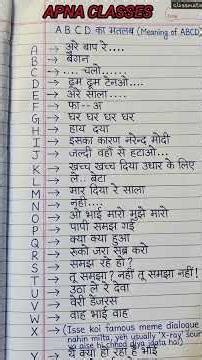 classmate
APNA CLASSES
A B C D का मतलब (Meaning of ABCD)
A → अरे बाप रे....
B → बैगन
C → .... चलो......
D → ढूम ढूम टेनओ....
E → अरे साला....
F → फा--अ
G → घर घर घर घर
H → हाय दया
I → इसका कारण नरेन्द्र मोदी
J → जल्दी वहाँ से हटाओ...
K → खच्च खच्च दिया उधार के लिए
L → ले.. बेटा
M → मार दिया रे साला
N → नहीं....
O → ओ भाई मारो मुझे मारो
P → पापी समझ गई
Q → क्या क्या हुआ
R → रूको जरा सब्र करो
S → समझ रहे हो?
T → तू समझा? नहीं तू समझा नहीं!
U → उठा ले रे देवा
V → वेरी डेंजरस
W → वाह भाई वाह
X → (Isse koi famous meme dialogue
nahin milta, yeh usually 'X-ray'
ya aise hi chhod diya jata hai)
Y → ये क्या हो रहा है भाई